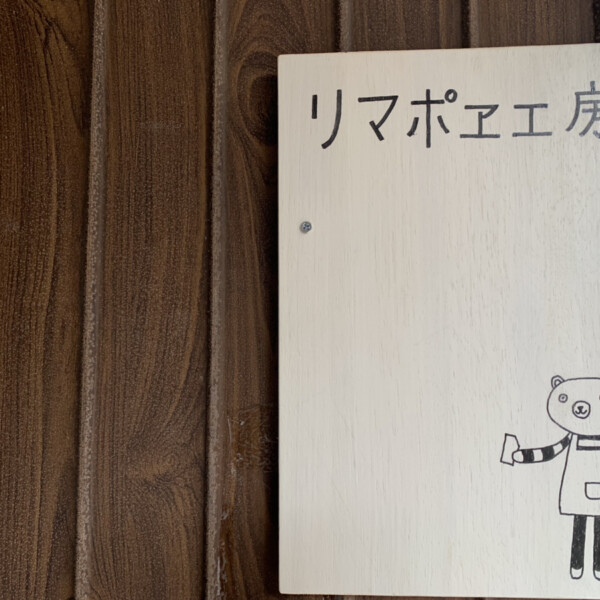 リマポヱ工房